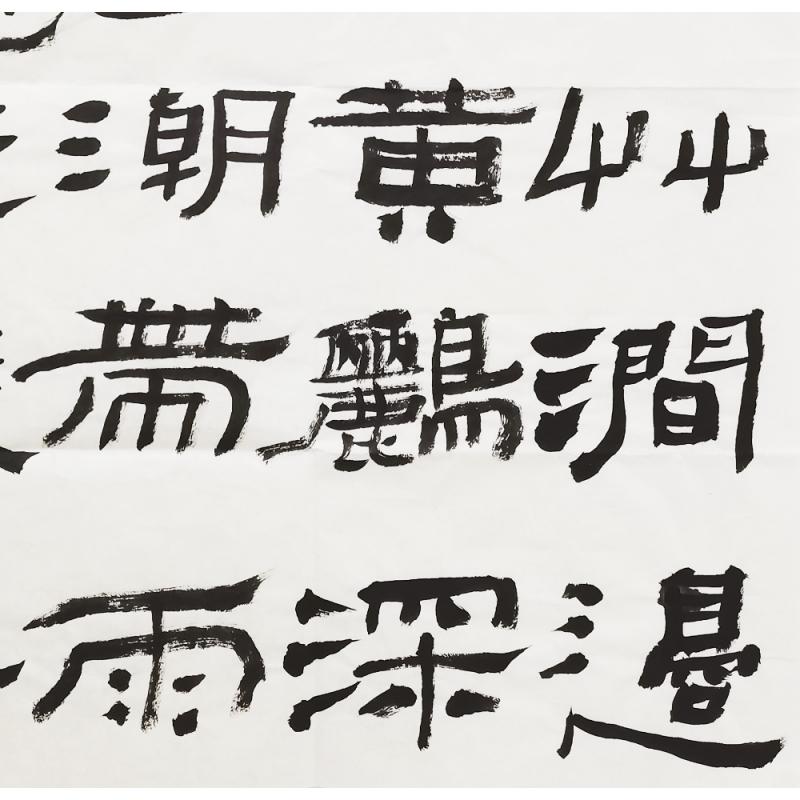 艸澗邊
黄鸝深
潮帶雨